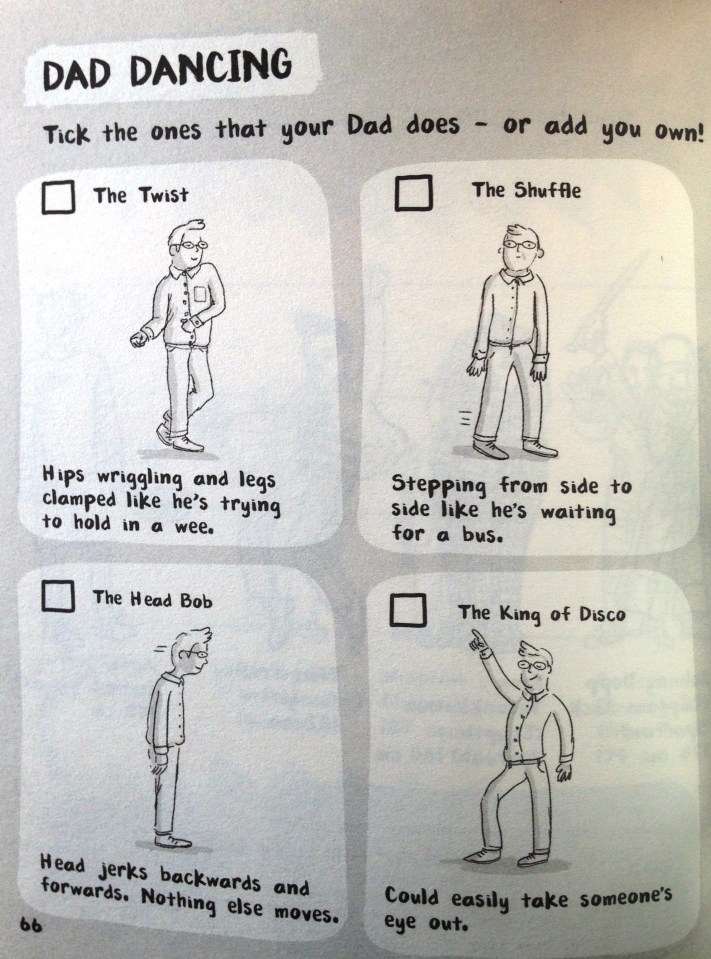 DAD DANCING
Tick the ones that your Dad does - or add you own!
The Twist
Hips wriggling and legs
clamped like he's trying
to hold in a wee.
The Shuffle
Stepping from side to
side like he's waiting
for a bus.
The Head Bob
Head jerks backwards and
forwards. Nothing else moves.
The King of Disco
Could easily take someone's
eye out.
66